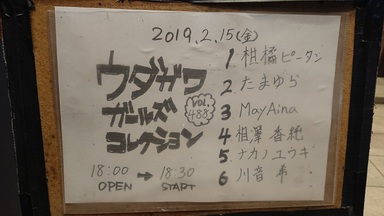 2019.2.15(金)
ウダガワ
ガールズ
コレクション
VOL.
488
18:00 → 18:30
OPEN START
1 柑橘ピータン
2 たまゆら
3 MayAina
4 相澤香純
5 ナカノユウキ
6 川音